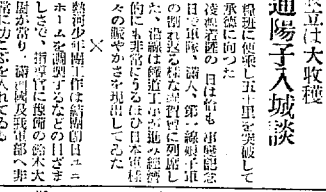 立は大收穫
通陽子入城談
糧班に便乘し五十里を突破して
承德に向つた
凌源着後の日は恰も軍旗記念
日で軍隊、滿人、第一線娘子軍
の割れ返る樣な演習會に列席し
た、沿線は修道工事も進み經濟
的にも非常にうるほひ日本軍樣
々の賑やかさを現出してゐた
×
熱河少年團工作は結團朝日ユニ
ホームを調製するなどの目ざま
しさで、指導官に豫備の鈴木大
尉が當り、滿洲國及我軍部へ非
常に力こぶを入れてゐる